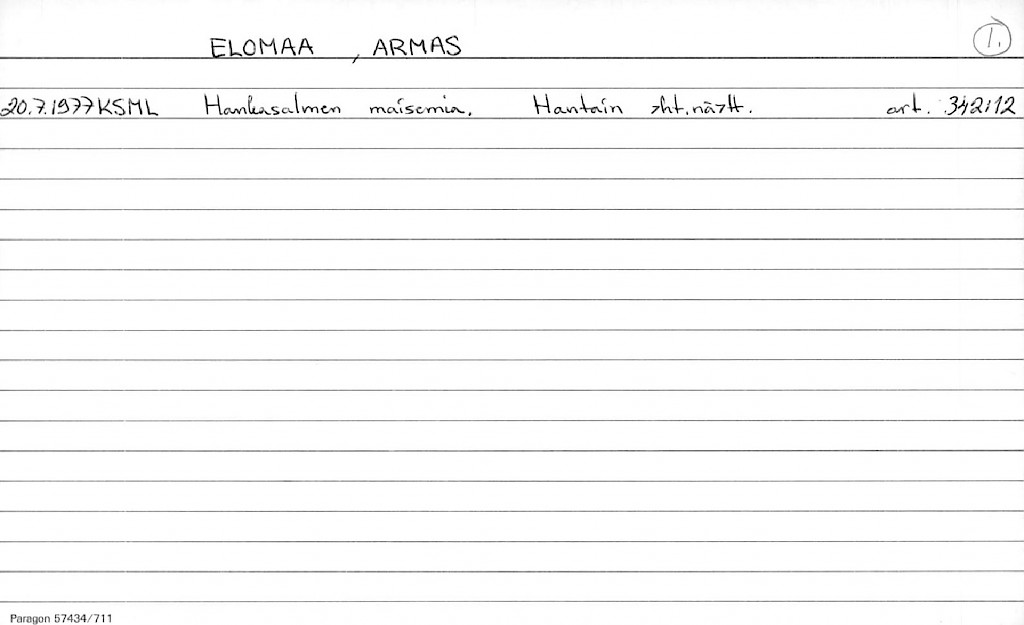 ELOMAA , ARMAS 1.
20.7.1977 KSML Hankasalmen maisemia. Hantain yht.näytt. art. 342:12
Paragon 57434/711